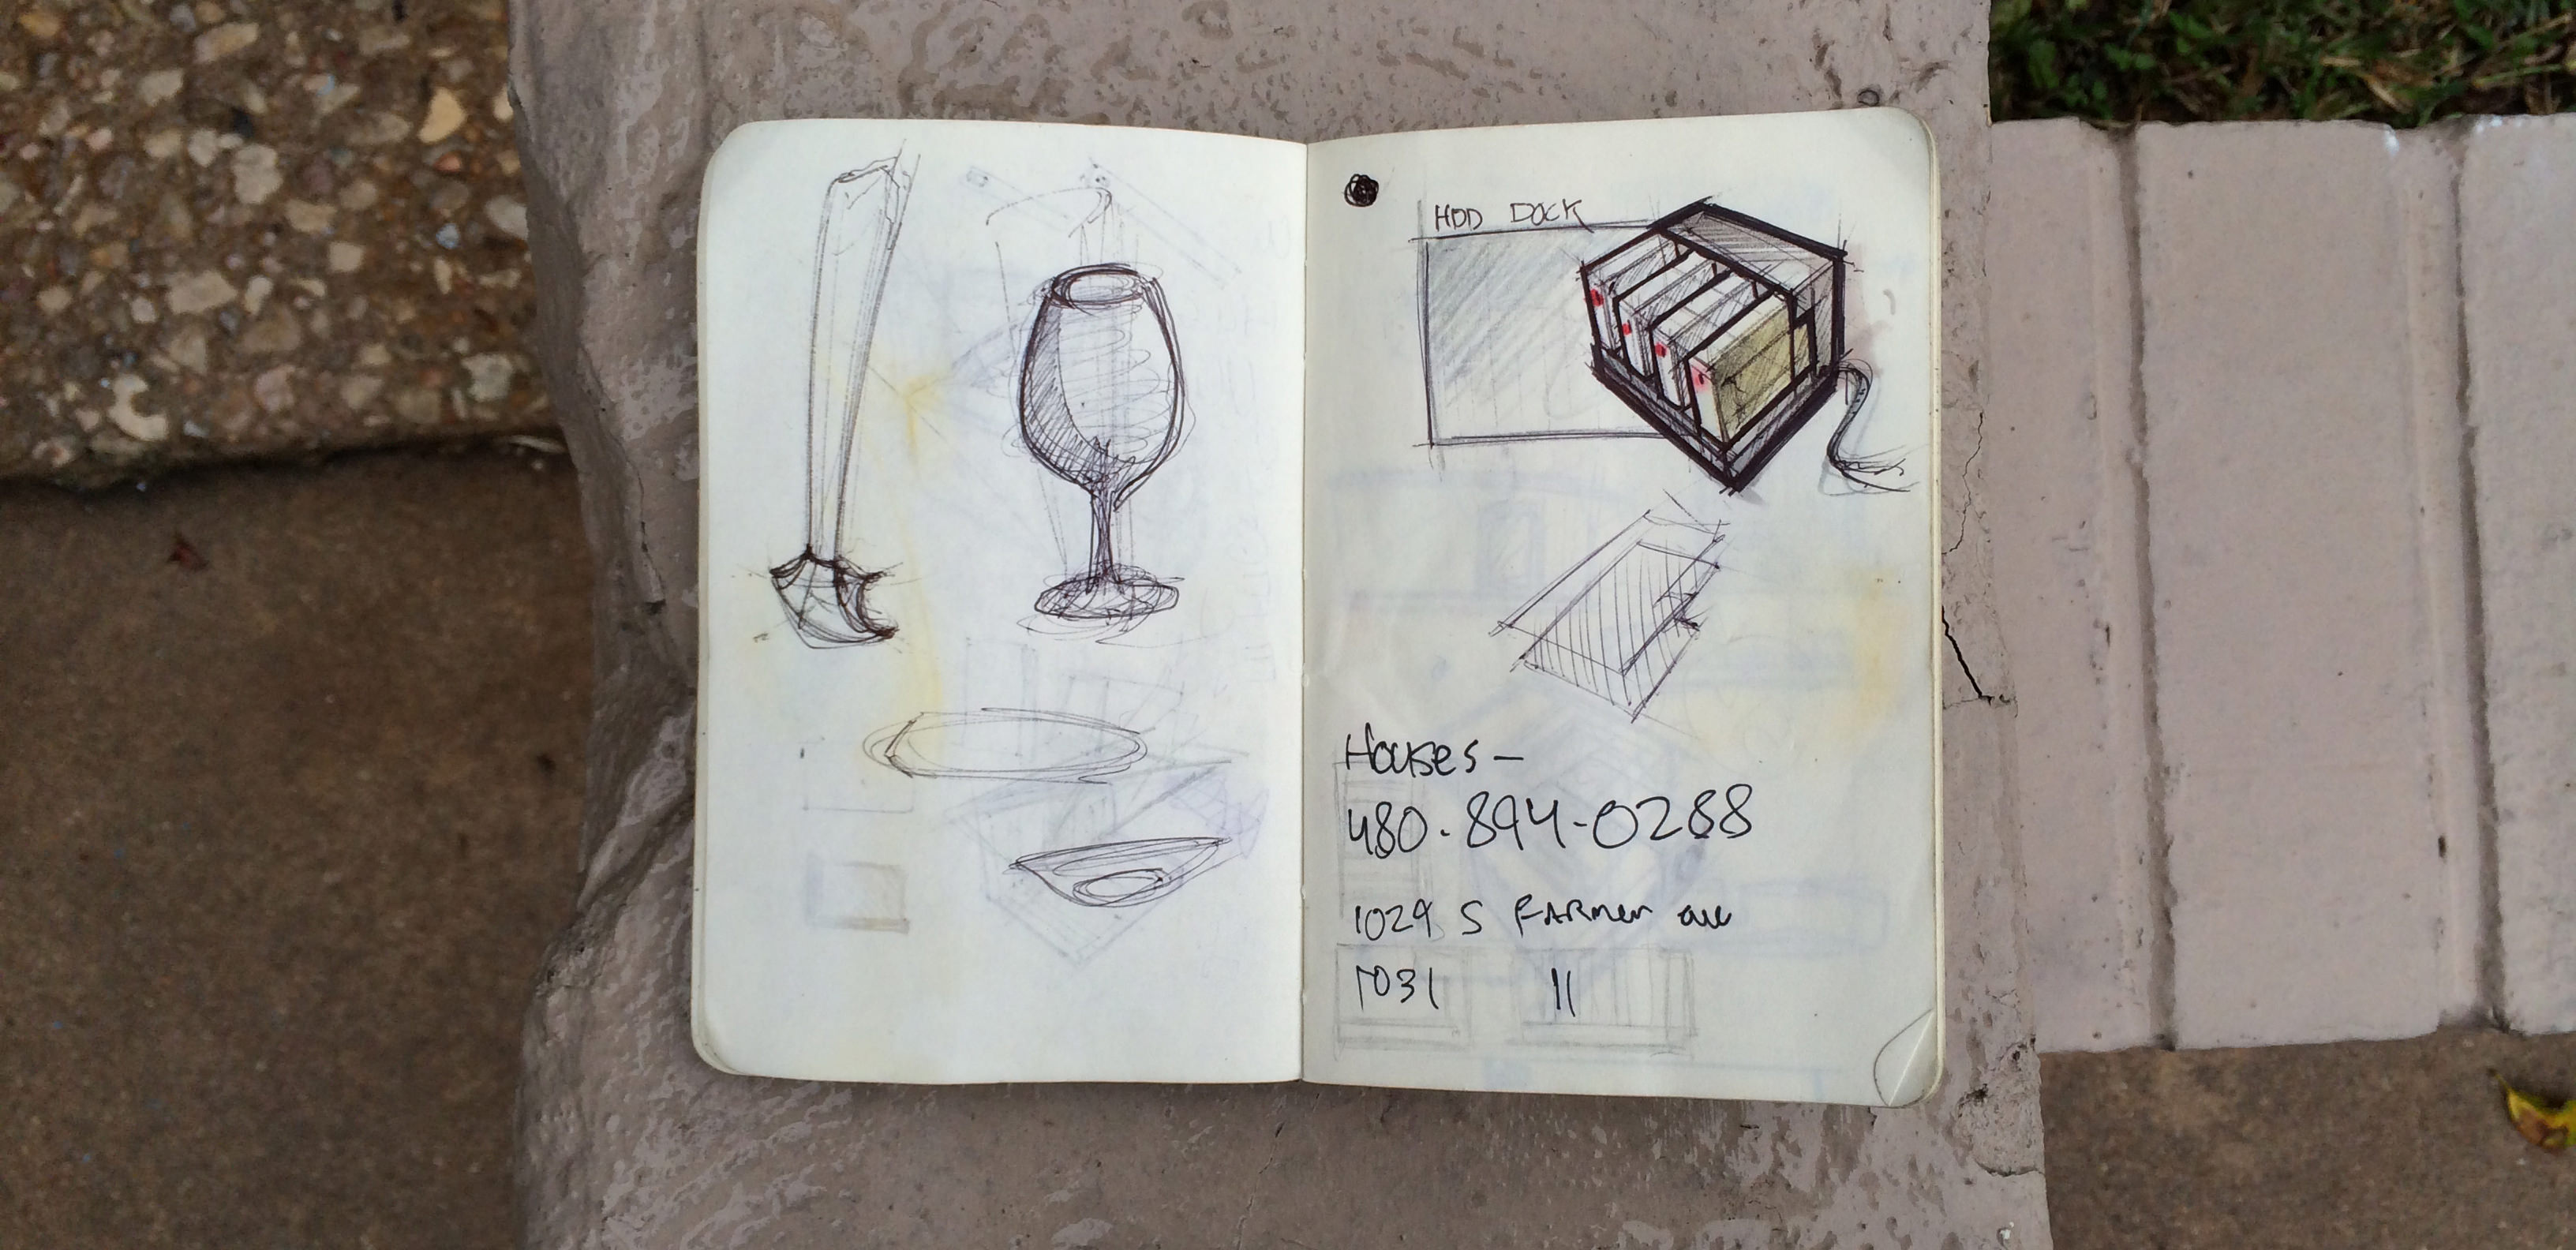 HDD DOCK
Houses -
480.894-0288
1029 S FARMER ave
1031 11